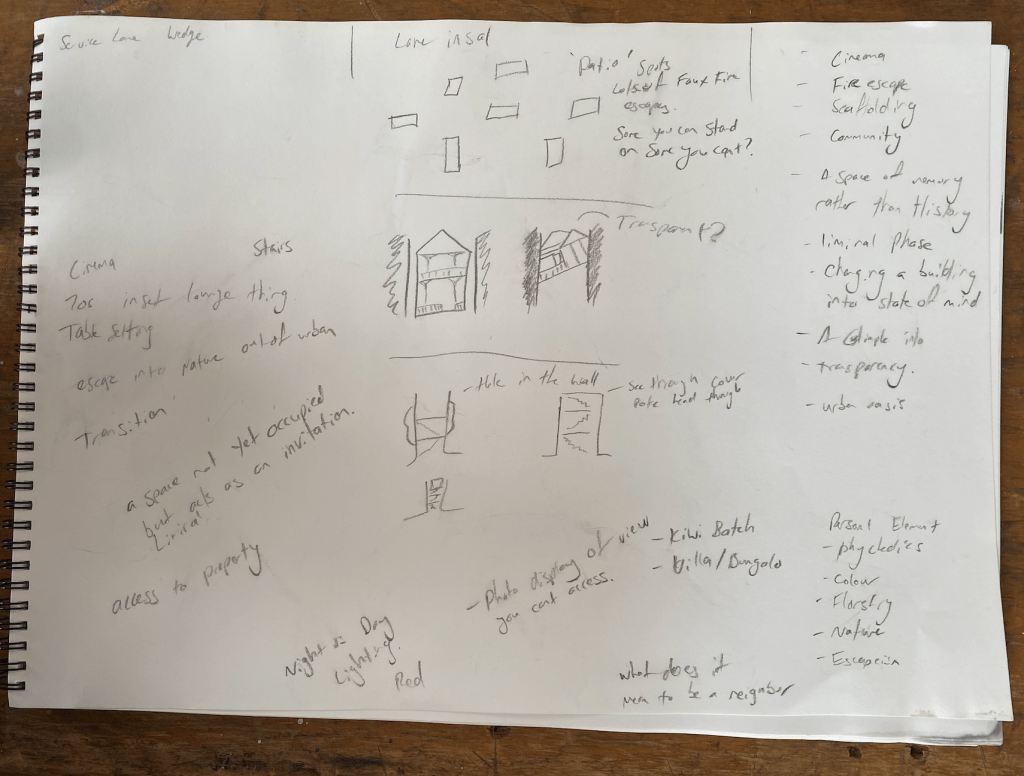 Service Lane Wedge
Lane insal
'Patio' Spots
Lots of Faux Fire
escapes.
Some you can stand
on Some you cant?
Transparent?
Stairs
Cinema
70s inset lounge thing
Table Setting
escape into nature out of urban
Transition
a space not yet occupied
but acts as an invitation.
Liminal
access to property
- Hole in the wall
- See through cover
Poke head though
- Photo display of view
you cant access.
- Kiwi Batch
- Villa/Bungalo
Night vs Day
Lighting.
Red
what does it
mean to be a neighbor
- Cinema
- Fire escape
- Scaffolding
- Community
- A space of memory
rather than History
- liminal Phase
- Changing a building
into state of mind
- A Glimpse into
- trasparency.
- urban oasis
Personal Element
- phycledics
- Colour
- Florstry
- Nature
- Escapeism